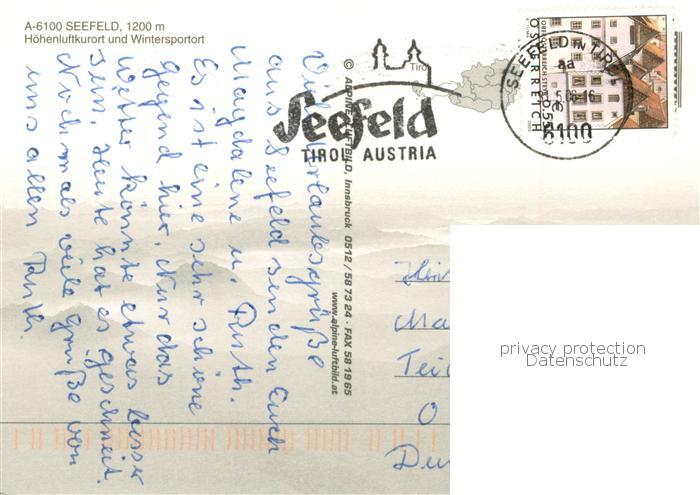 A-6100 SEEFELD, 1200 m
Höhenluftkurort und Wintersportort
Viele Urlaubsgrüße
aus Seefeld senden Euch
Magdalene u. Ruth.
Es ist eine sehr schöne
Gegend hier. Nur das
Wetter könnte etwas besser
sein. Heute hat es geschneit.
Nochmals viele Grüße von
uns allen Ruth.
© ALPINE LUFTBILD, Innsbruck 0512 / 58 73 24 · FAX 58 19 65
www.alpine-luftbild.at
Tirol
Seefeld
TIROL AUSTRIA
SEEFELD IN TIROL
aa
6100
ÖSTERREICH
055
Ma
Tei
O
privacy protection
Datenschutz